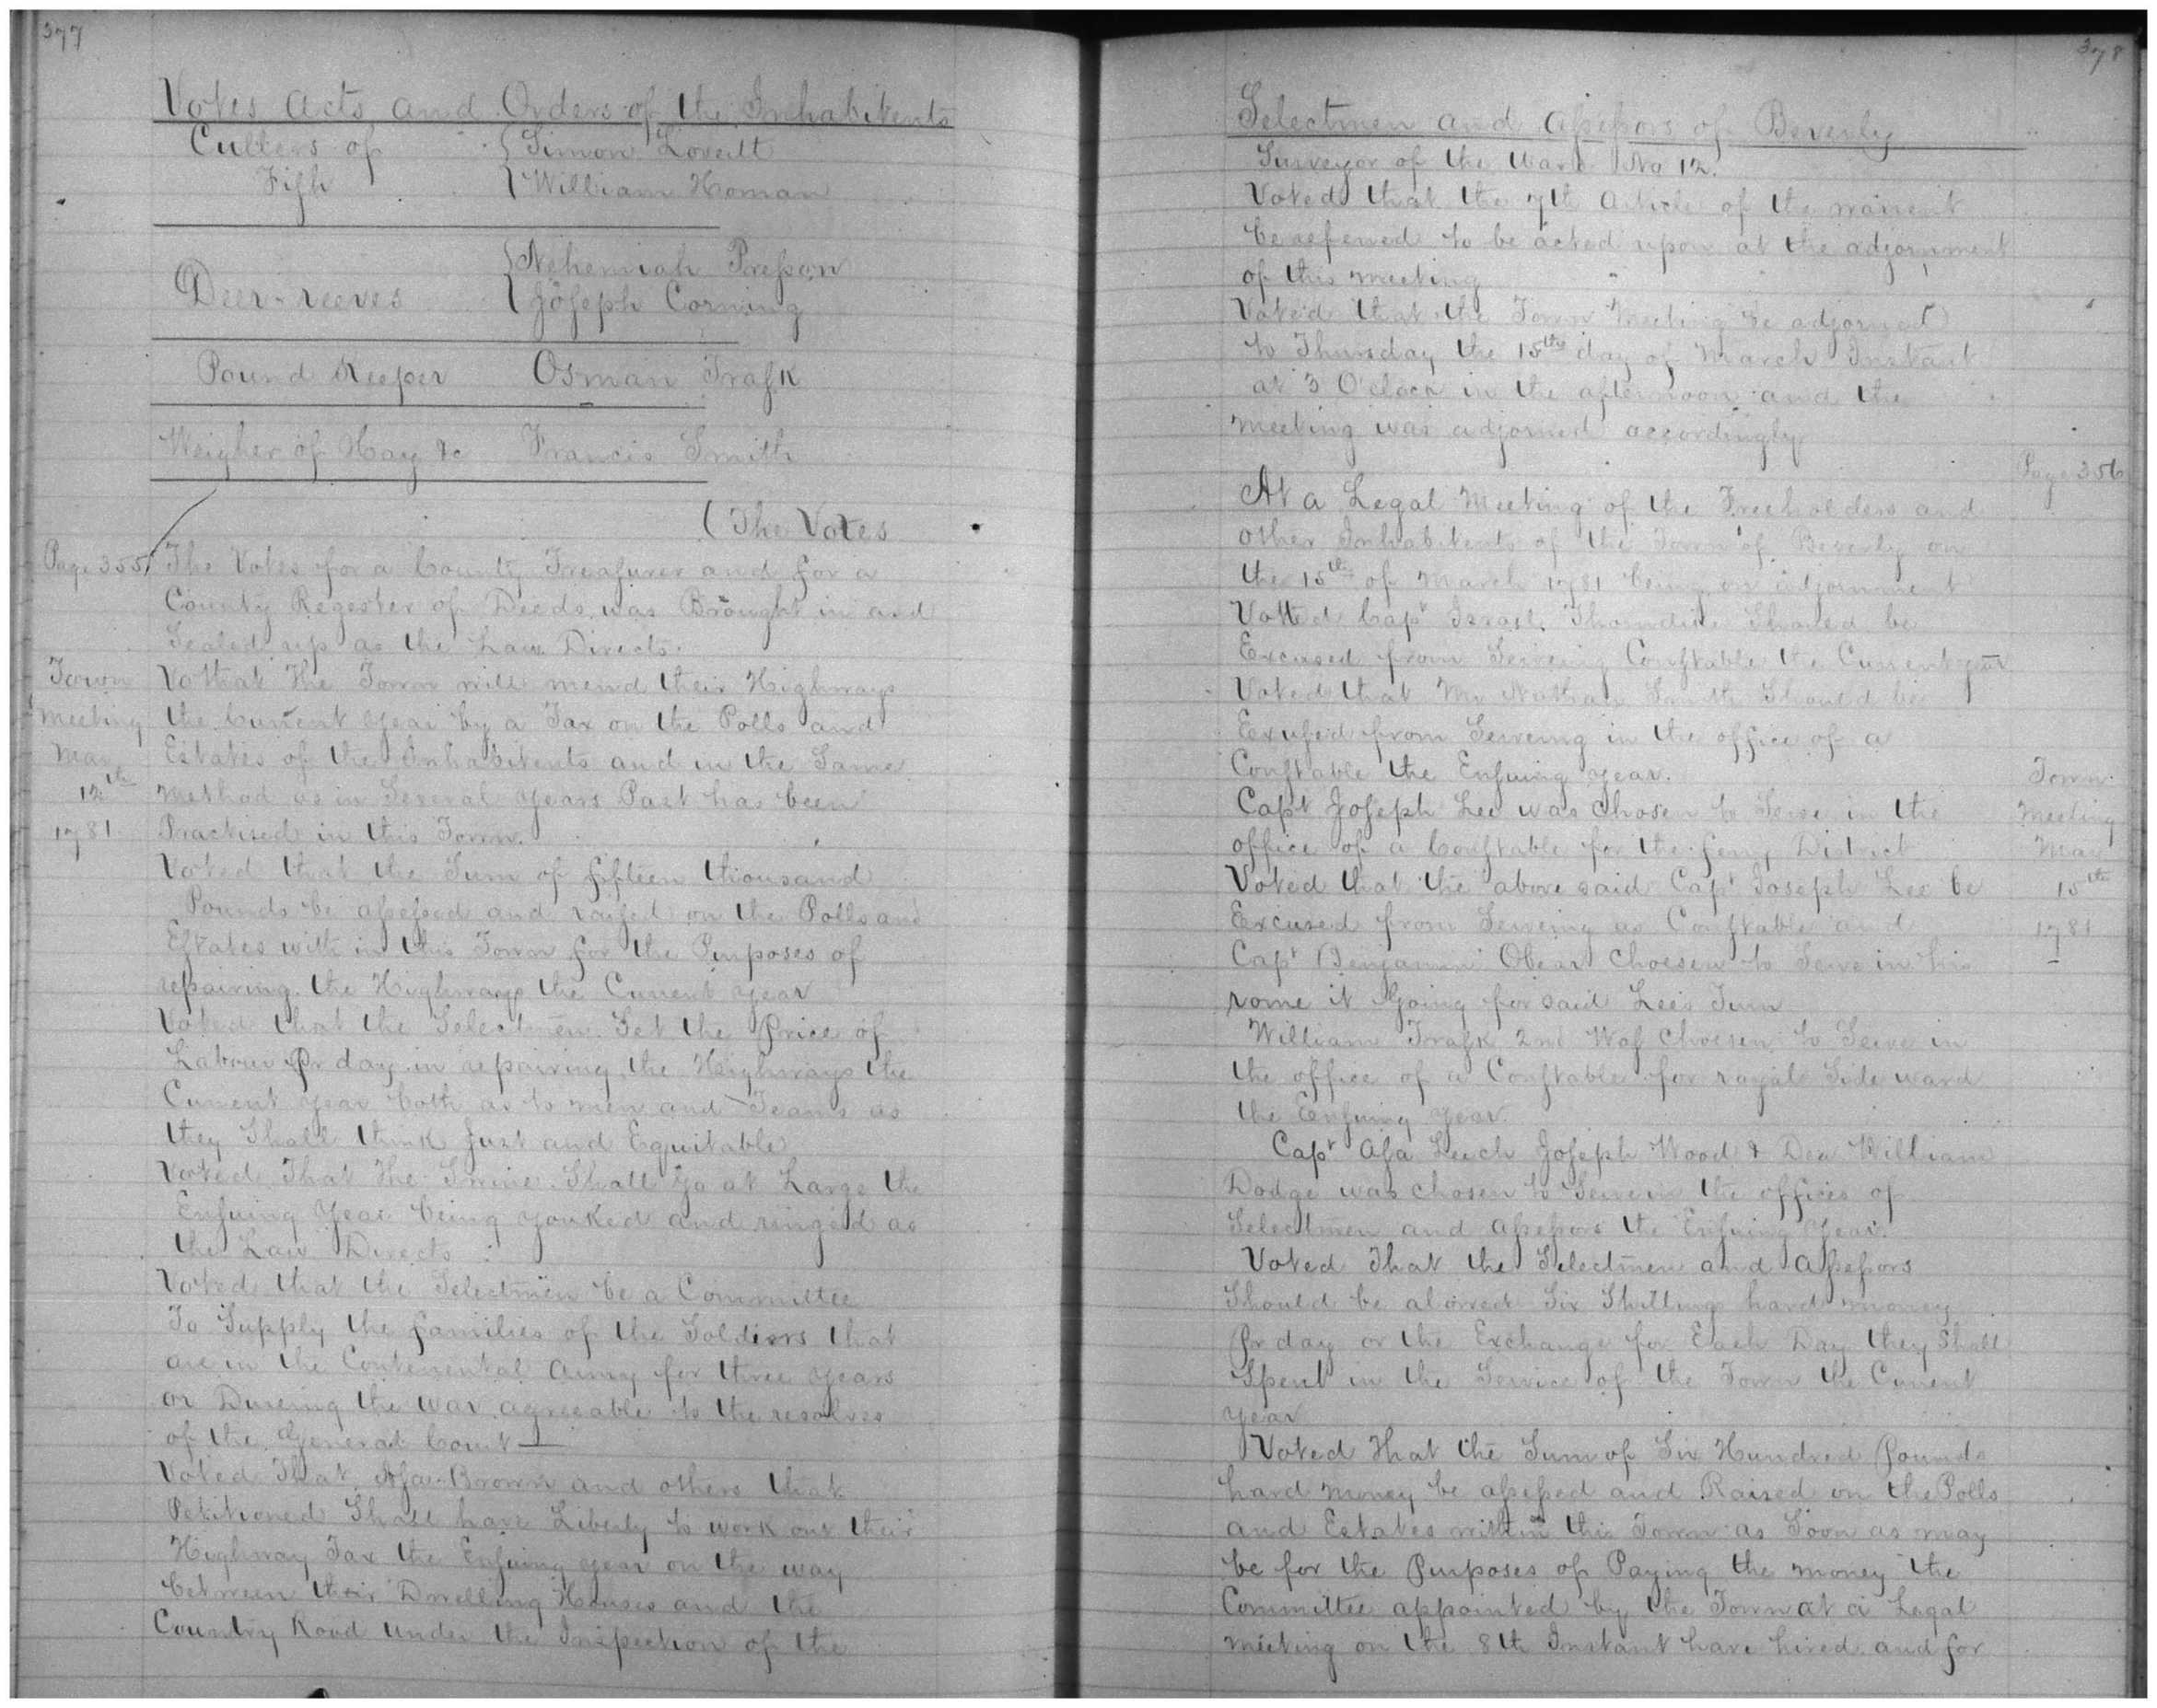 377
Votes Acts and Orders of the Inhabitents
Cullers of { Simon Lovett
Fish { William Homan
{ Nehemiah Presson
Deer-reeves { Joseph Corning
Pound Keeper Osman Trask
Weigher of Hay &c Francis Smith
( The Votes
Page 355 The Votes for a County Treasurer and for a
County Regester of Deeds was Brought in and
Sealed up as the Law Directs.
Town Vo that The Town will mend their Highways
Meeting the Current year by a Tax on the Polls and
Mar Estates of the Inhabitents and in the Same
12th method as in Several years Past has been
1781 Practised in this Town.
Voted that the Sum of fifteen thousand
Pounds be assessed and raised on the Polls and
Estates with in this Town for the Purposes of
repairing the Highways the Current year
Voted that the Selectmen Set the Price of
Labour Pr day in repairing the Highways the
Current year both as to men and Teams as
they Shall think Just and Equitable
Voted That The Swine Shall go at Large the
Ensuing Year being youked and ringed as
the Law Directs
Voted that the Selectmen be a Committee
To Supply the families of the Soldiers that
are in the Contenental Army for three years
or Dureing the War agreeable to the resolves
of the General Court —
Voted That Asa Brown and others that
Petitioned Shall have Liberty to work out their
Highway Tax the Ensuing year on the way
between their Dwelling Houses and the
Country Road under the Inspection of the
378
Selectmen and Assessors of Beverly
Surveyor of the Ward No 12.
Voted that the 7th Article of the warrent
be referred to be acted upon at the adjornment
of this meeting
Voted that the Town Meeting be adjorned
to Thursday the 15th day of March Instant
at 3 O'clock in the afternoon and the
meeting was adjorned accordingly
Page 356
At a Legal Meeting of the Freeholders and
other Inhabitents of the Town of Beverly on
the 15th of March 1781 being on adjornment
Votted Capt Israel Thorndike Should be
Excused from Serveing Constable the Current year
Voted that Mr Nathan Smith Should be
Exused from Serveing in the office of a
Constable the Ensuing year. Town
Capt Joseph Lee was Chosen to Serve in the Meeting
office of a Constable for the ferry District Mar
Voted that the above said Capt Joseph Lee be 15th
Excused from Serveing as Constable and 1781
Capt Benjamin Obear Choesen to Serve in his
rome it going for said Lee's Turn
William Trask 2nd Was Choesen to Serve in
the office of a Constable for royal Side ward
the Ensuing year.
Capt Asa Leech Joseph Wood & Dea William
Dodge was chosen to Serve in the offices of
Selectmen and Assessors the Ensuing Year.
Voted That the Selectmen and Assessors
Should be alowed Six Shillings hard money
Pr day or the Exchange for Each Day they Shall
Spent in the Service of the Town the Current
year
Voted That the Sum of Six Hundred Pounds
hard money be assessed and Raised on the Polls
and Estates within this Town as Soon as may
be for the Purposes of Paying the money the
Committee appointed by the Town at a Legal
meeting on the 8th Instant have hired and for